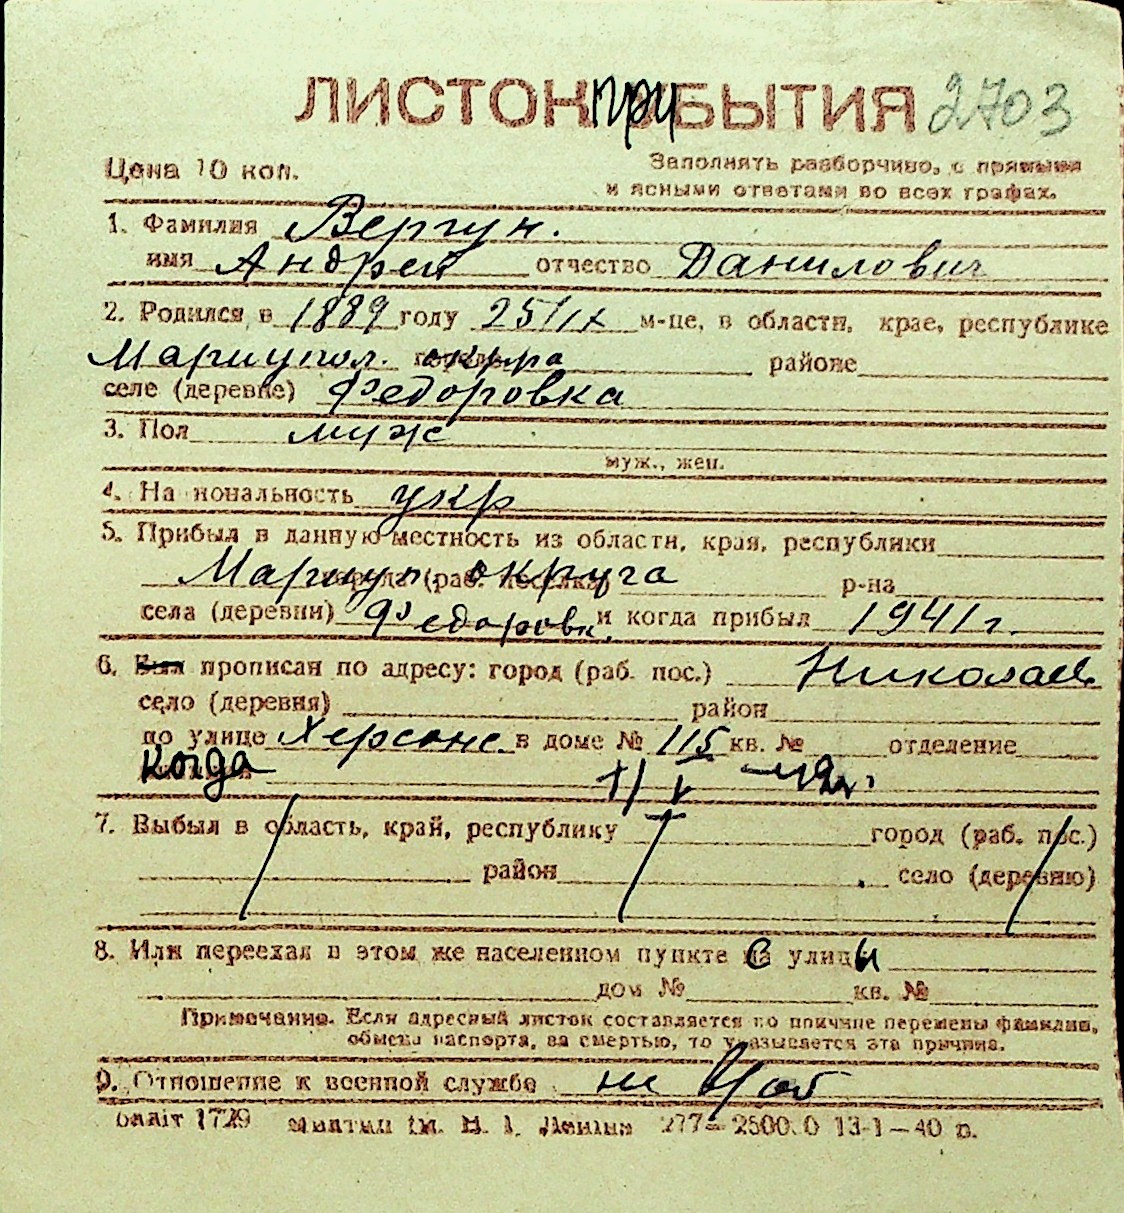 ЛИСТОК ПРИБЫТИЯ 2703
Цена 10 коп.
Заполнять разборчиво, с прямыми
и ясными ответами во всех графах.
1. Фамилия Вергун.
имя Андрей отчество Данилович
2. Родился в 1889 году 25/IX м-це, в области, крае, республике
Мариупол. округа районе
селе (деревне) Федоровка
3. Пол муж
муж., жен.
4. Национальность укр
5. Прибыл в данную местность из области, края, республики
Мариуп. округа (раб. поселка) р-на
села (деревни) Федоровк. и когда прибыл 1941 г.
6. Был прописан по адресу: город (раб. пос.) Николаев
село (деревня) район
по улице Херсонс. в доме № 115 кв. № отделение
когда
7. Выбыл в область, край, республику город (раб. пос.)
район село (деревню)
8. Или переехал в этом же населенном пункте с улицы
дом № кв. №
Примечание. Если адресный листок составляется по причине перемены фамилии,
обмена паспорта, за смертью, то указывается эта причина.
9. Отношение к военной службе не
1729 277—2500.0 13-1—40 р.